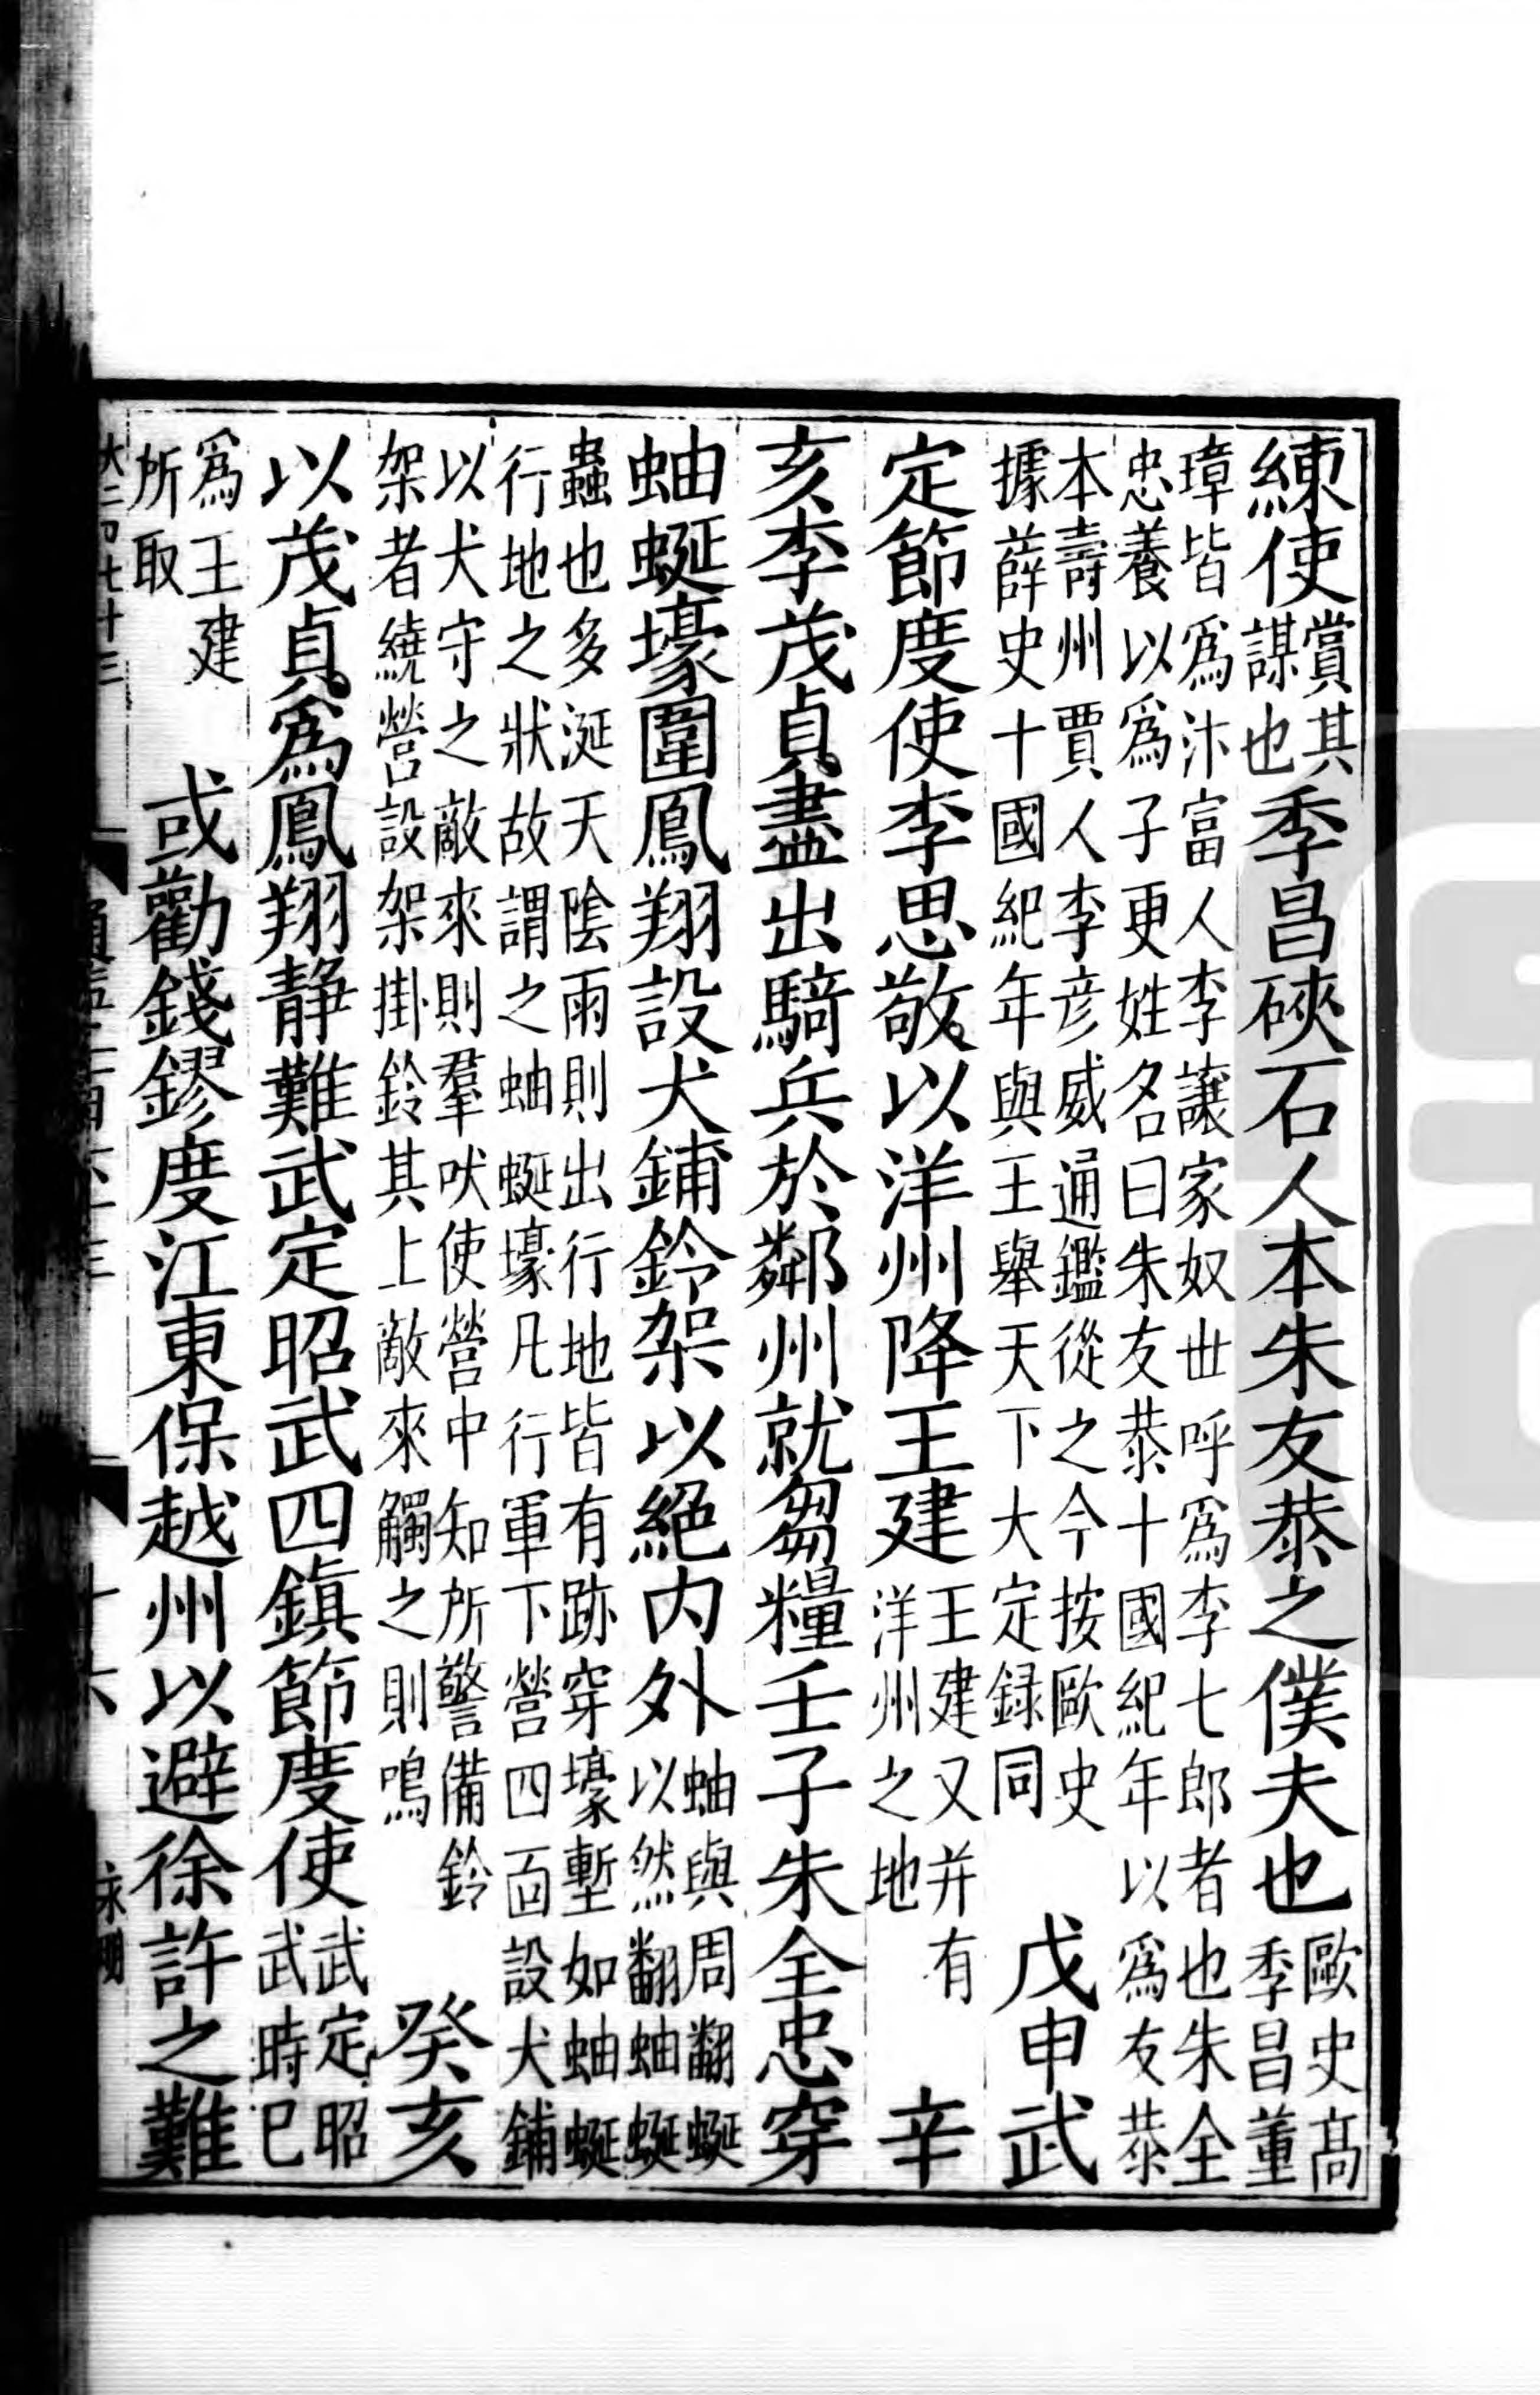 練使賞其謀也季昌硤石人本朱友恭之僕夫也歐史高季昌董
璋皆爲汴富人李讓家奴世呼爲李七郎者也朱全
忠養以爲子更姓名曰朱友恭十國紀年以爲友恭
本壽州賈人李彦威通鑑從之今按歐史
據薛史十國紀年與王舉天下大定録同
戊申武
定節度使李思敬以洋州降王建王建又并有洋州之地辛
亥李茂貞盡出騎兵於鄰州就芻糧壬子朱全忠穿
蚰蜒壕圍鳳翔設犬鋪鈴架以絕内外蚰與周翻蜒以然翻蚰蜒
蟲也多涎天陰雨則出行地皆有跡穿壕塹如蚰蜒
行地之狀故謂之蚰蜒壕凡行軍下營四面設犬鋪
以犬守之敵來則羣吠使營中知所警備鈴
架者繞營設架掛鈴其上敵來觸之則鳴
癸亥
以茂貞爲鳳翔靜難武定昭武四鎮節度使武定昭武時已
爲王建所取或勸錢鏐度江東保越州以避徐許之難